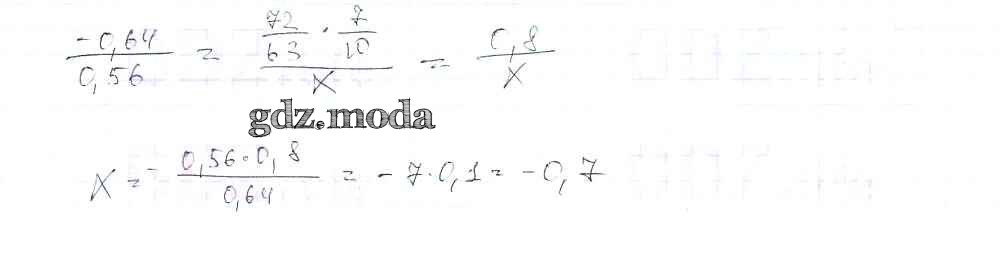 -0,64/0,56 = (72/63 · 7/10)/x = 0,8/x
gdz.moda
x = - 0,56·0,8/0,64 = -7·0,1 = -0,7